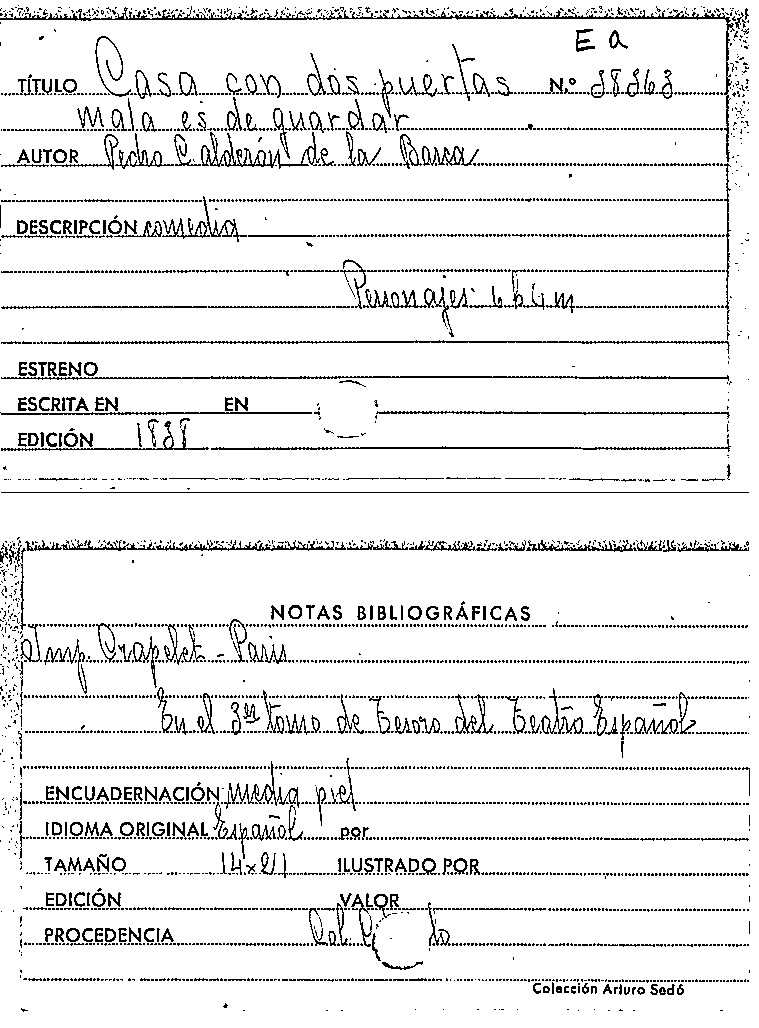 E a
TÍTULO Casa con dos puertas N.º 38363
mala es de guardar
AUTOR Pedro Calderón de la Barca
DESCRIPCIÓN comedia
Personajes: 6 h 4 m
ESTRENO
ESCRITA EN EN
EDICIÓN 1838
NOTAS BIBLIOGRÁFICAS
Imp. Crapelet - Paris
En el 3er tomo de Tesoro del Teatro Español
ENCUADERNACIÓN media piel
IDIOMA ORIGINAL Español por
TAMAÑO 14 x 21 ILUSTRADO POR
EDICIÓN VALOR
PROCEDENCIA Col.
Colección Arturo Sedó